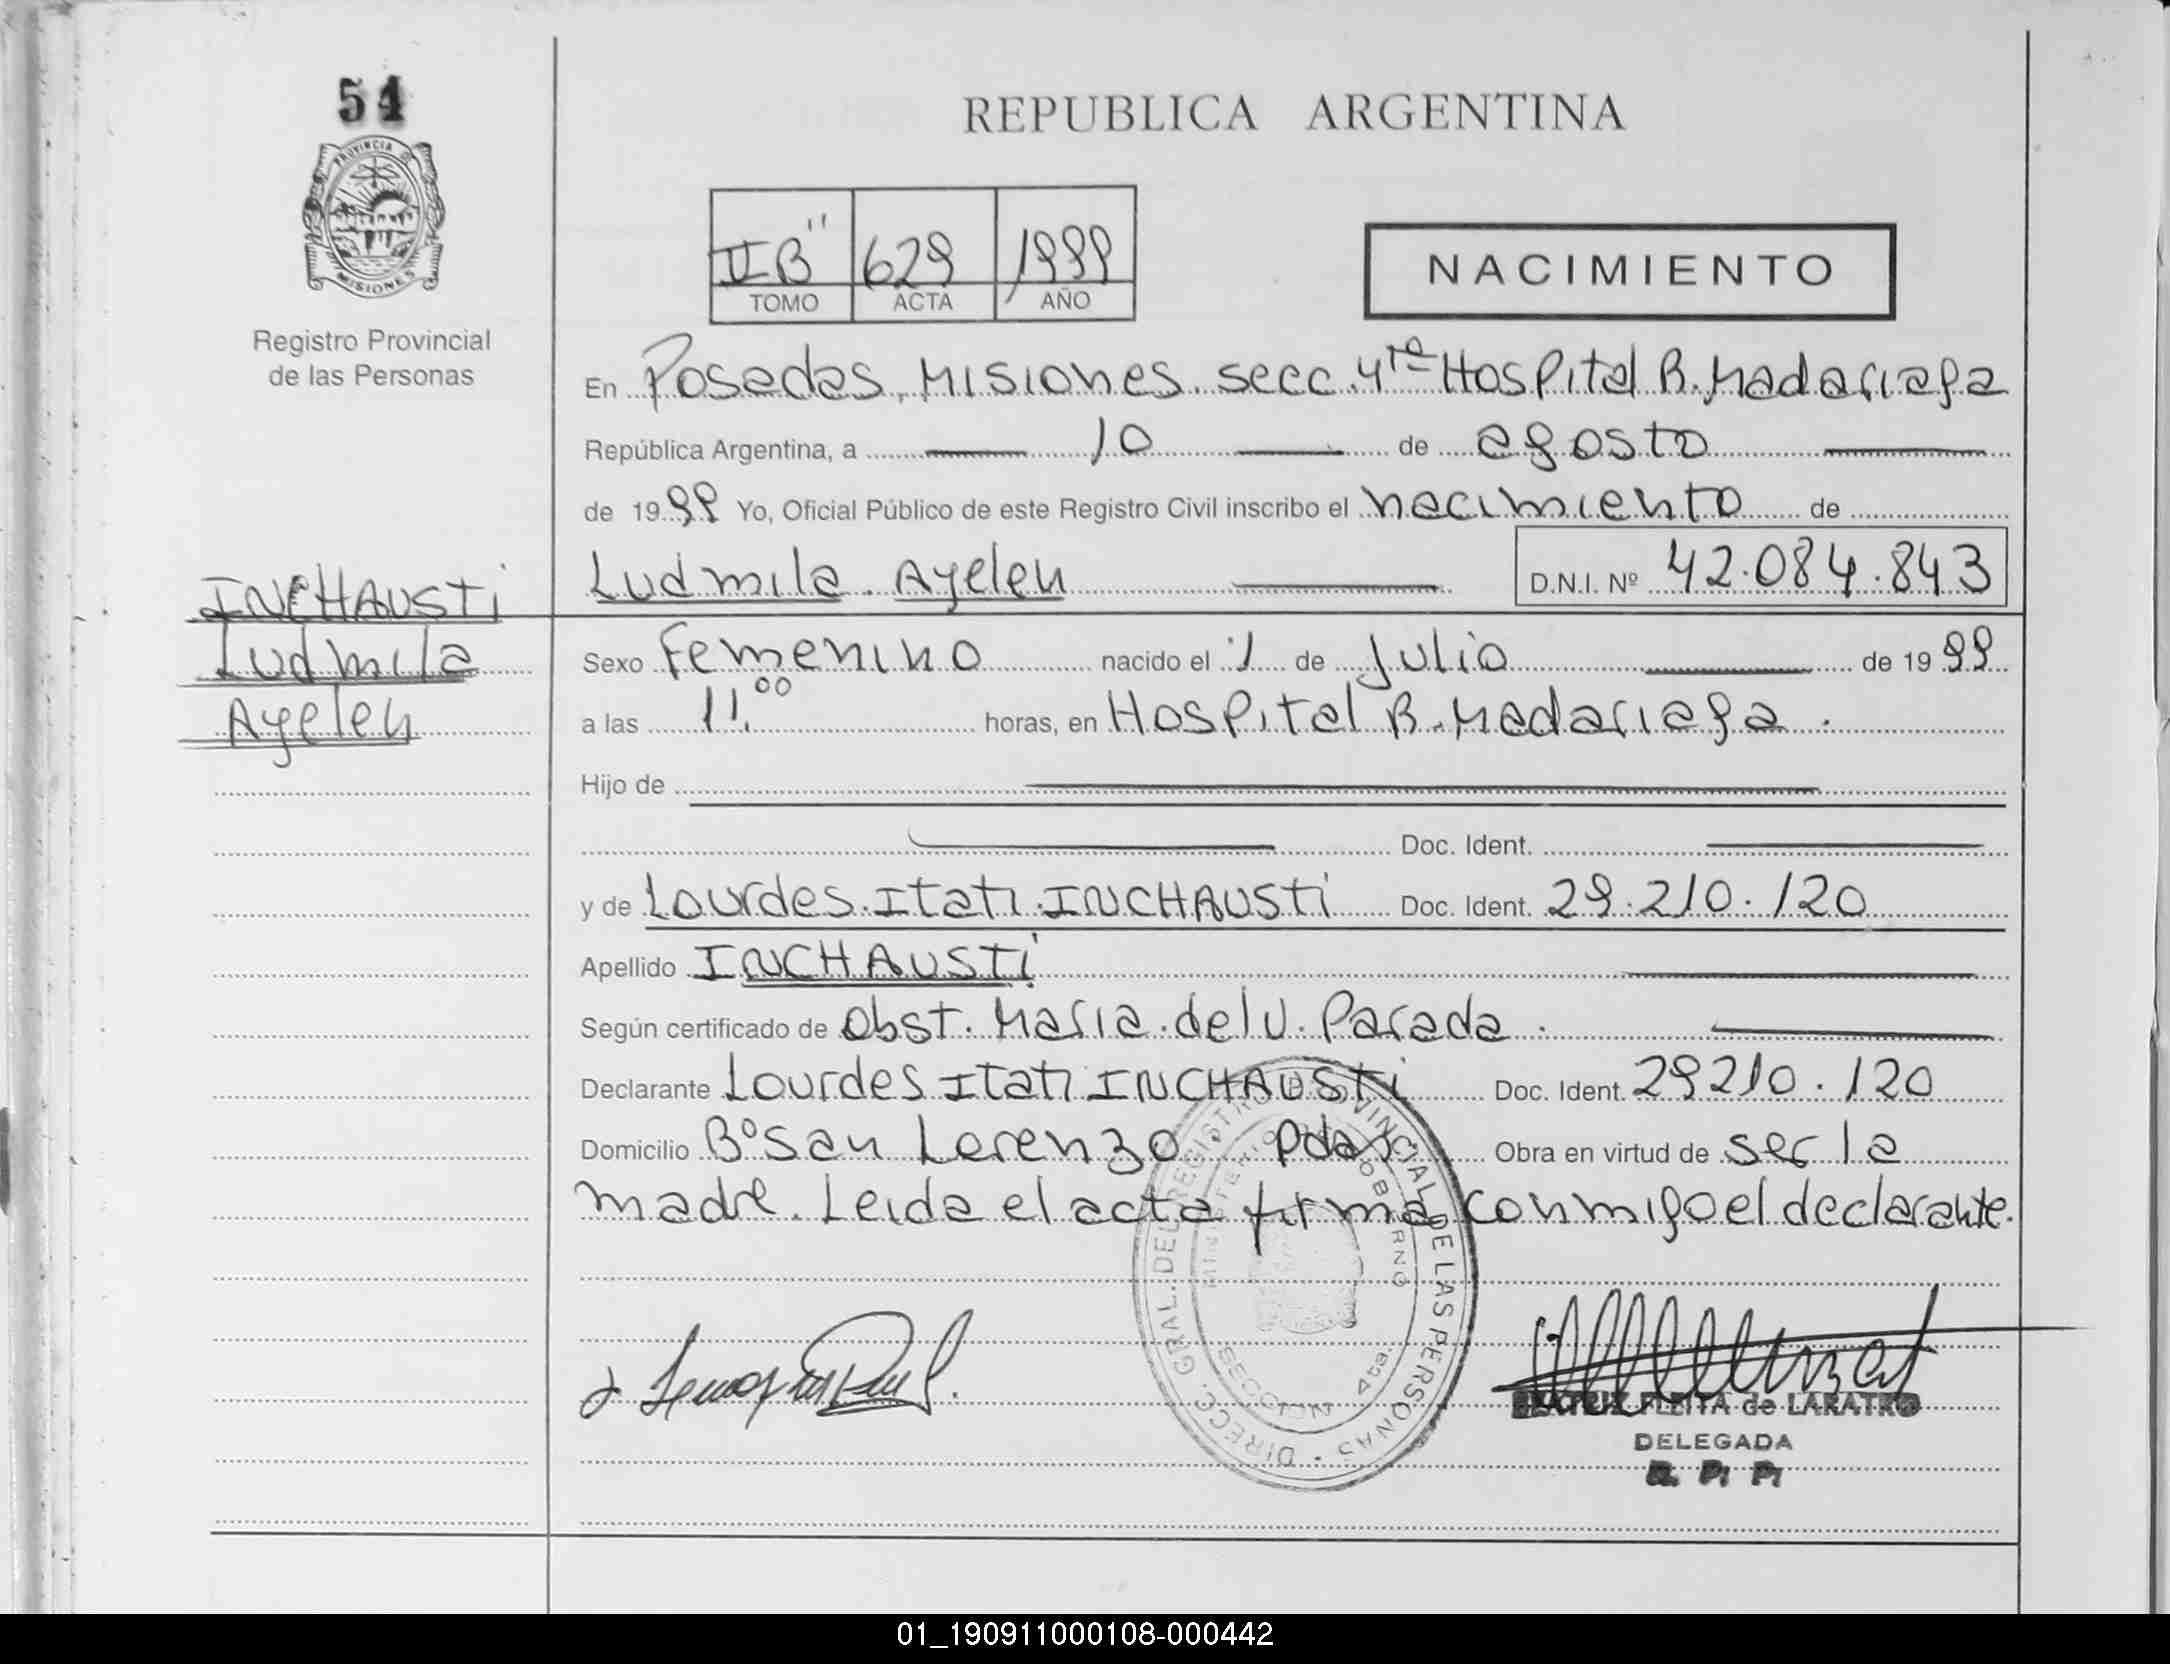 54
REPUBLICA ARGENTINA
PROVINCIA D
MISIONES
Registro Provincial
de las Personas
II B" 629 1999
TOMO ACTA AÑO
NACIMIENTO
En Posadas, Misiones secc. 4ta Hospital R. Madariaga
República Argentina, a 10 de agosto
de 1999 Yo, Oficial Público de este Registro Civil inscribo el nacimiento de
Ludmila Ayelen D.N.I. Nº 42.084.843
INCHAUSTI
Ludmila
Ayelen
Sexo Femenino nacido el 1 de Julio de 1999
a las 11.00 horas, en Hospital R. Madariaga.
Hijo de
Doc. Ident.
y de Lourdes Itatí INCHAUSTI Doc. Ident. 29.210.120
Apellido INCHAUSTI
Según certificado de Obst. Maria del V. Parada.
Declarante Lourdes Itatí INCHAUSTI Doc. Ident. 29210.120
Domicilio Bº San Lorenzo. Pdas. Obra en virtud de ser la
madre. Leida el acta firma conmigo el declarante.
DIRECC. GRAL. DEL REGISTRO PROVINCIAL DE LAS PERSONAS
MINISTERIO DE GOBIERNO
SECCION 4ta.
BEATRIZ FLEITA de LARATRO
DELEGADA
R. P. P.
01_190911000108-000442